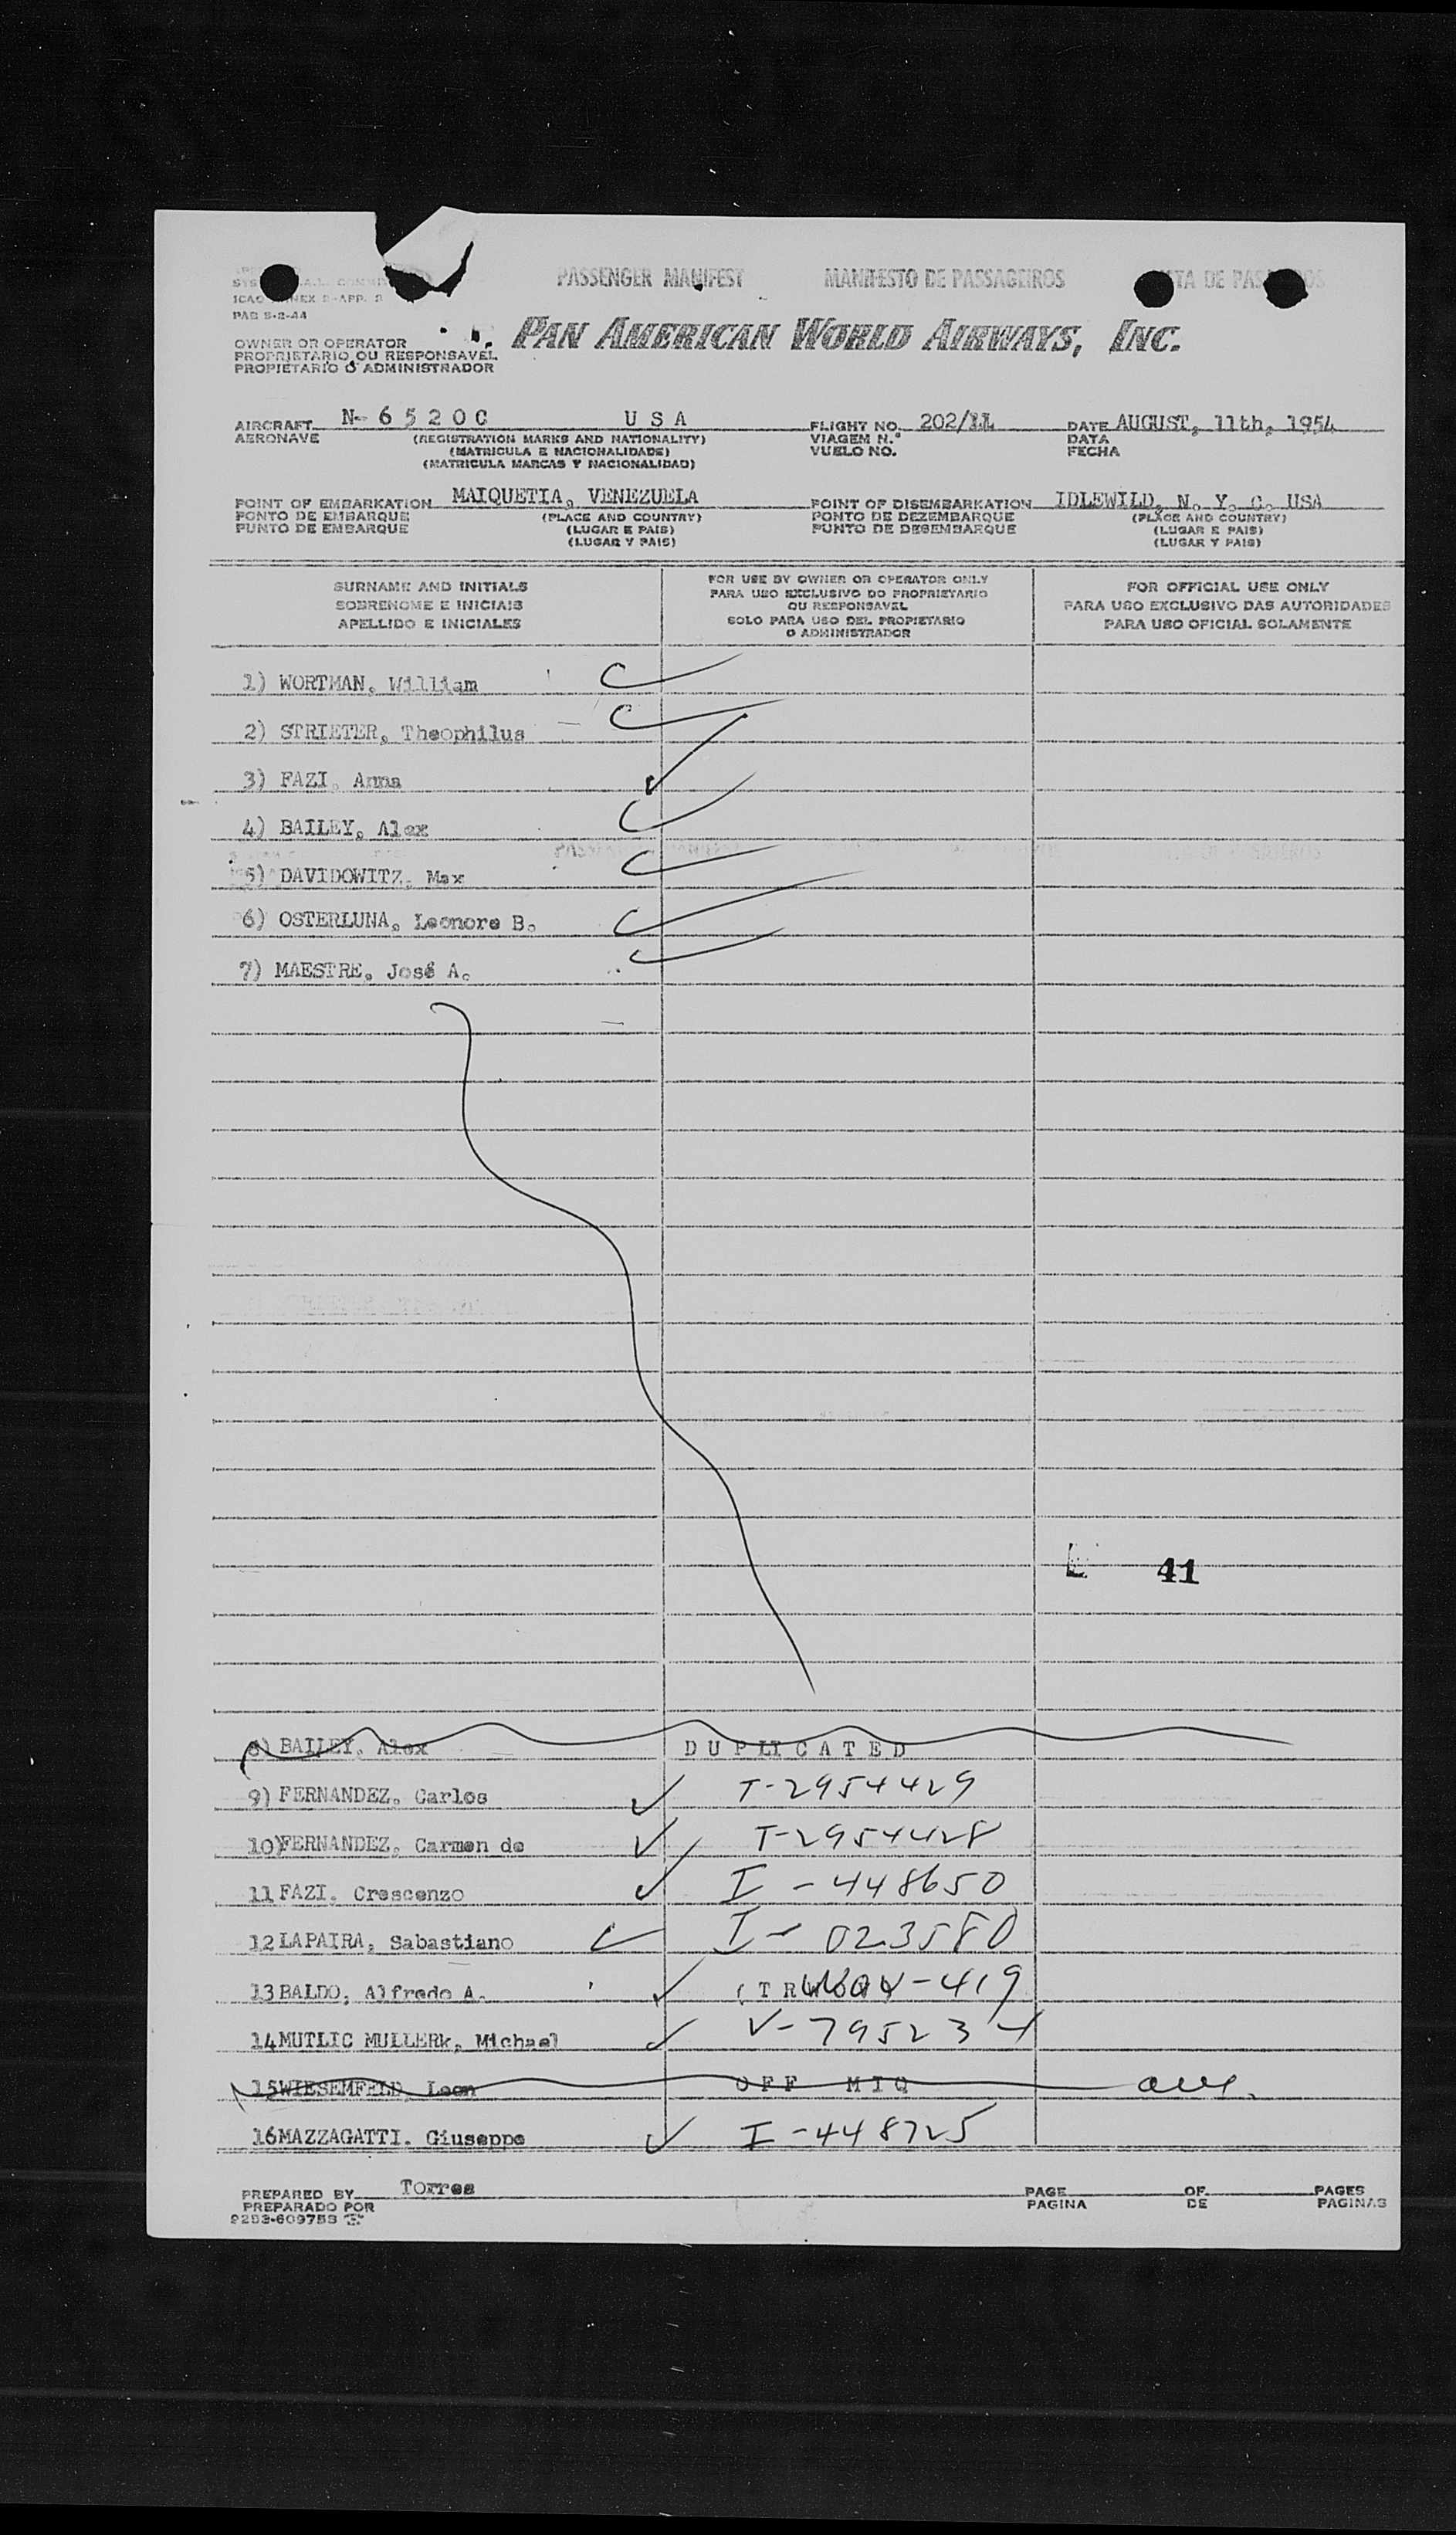 PASSENGER MANIFEST MANIFESTO DE PASSAGEIROS
ICAO ANNEX 9-APP. 3
PAB 5-2-44
OWNER OR OPERATOR
PROPRIETARIO OU RESPONSAVEL
PROPIETARIO O ADMINISTRADOR
PAN AMERICAN WORLD AIRWAYS, INC.
AIRCRAFT N- 6 5 2 0 C U S A FLIGHT NO. 202/LL DATE AUGUST, 11th, 1954
AERONAVE (REGISTRATION MARKS AND NATIONALITY) VIAGEM N.º DATA
(MATRICULA E NACIONALIDADE) VUELO NO. FECHA
(MATRICULA MARCAS Y NACIONALIDAD)
POINT OF EMBARKATION MAIQUETIA, VENEZUELA POINT OF DISEMBARKATION IDLEWILD, N. Y. C. USA
PONTO DE EMBARQUE (PLACE AND COUNTRY) PONTO DE DEZEMBARQUE (PLACE AND COUNTRY)
PUNTO DE EMBARQUE (LUGAR E PAIS) PUNTO DE DESEMBARQUE (LUGAR E PAIS)
(LUGAR Y PAIS) (LUGAR Y PAIS)
SURNAME AND INITIALS
SOBRENOME E INICIAIS
APELLIDO E INICIALES
FOR USE BY OWNER OR OPERATOR ONLY
PARA USO EXCLUSIVO DO PROPRIETARIO
OU RESPONSAVEL
SOLO PARA USO DEL PROPIETARIO
O ADMINISTRADOR
FOR OFFICIAL USE ONLY
PARA USO EXCLUSIVO DAS AUTORIDADES
PARA USO OFICIAL SOLAMENTE
1) WORTMAN, William
2) STRIETER, Theophilus
3) FAZI, Anna
4) BAILEY, Alex
5) DAVIDOWITZ, Max
6) OSTERLUNA, Leonore B.
7) MAESTRE, José A.
41
8) BAILEY, Alex D U P L I C A T E D
9) FERNANDEZ, Carlos T-2954429
10) FERNANDEZ, Carmen de T-2954428
11 FAZI, Crescenzo I-448650
12 LAPAIRA, Sabastiano I-023580
13 BALDO, Alfredo A. -419
14 MUTLIC MULLERk, Michael V-795234
15 WIESEMFELD, Leon O F F M I Q
16 MAZZAGATTI, Giuseppe I-448725
PREPARED BY Torres PAGE OF PAGES
PREPARADO POR PAGINA DE PAGINAS
9253-609753